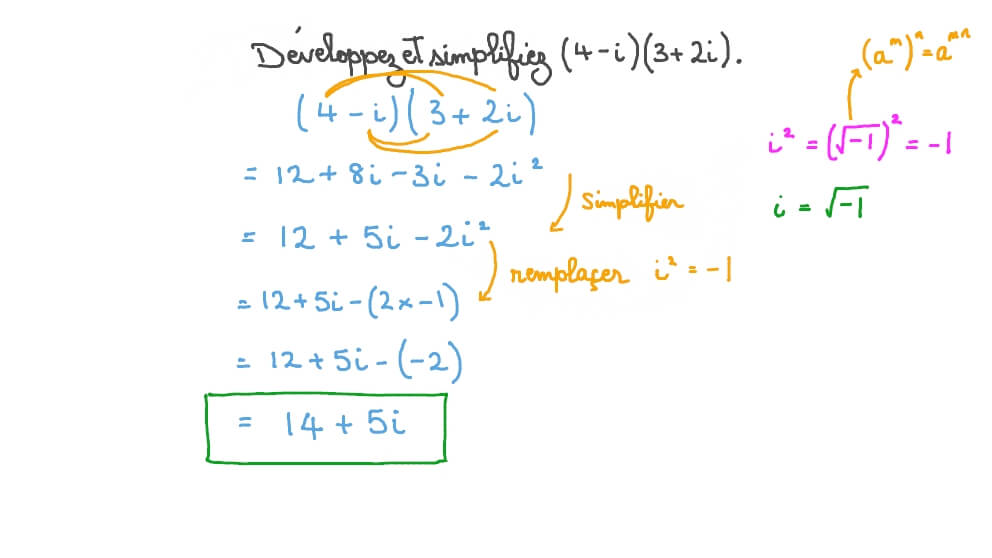 Développez et simplifiez (4-i)(3+2i).
(4-i)(3+2i)
= 12 + 8i - 3i - 2i²
simplifier
= 12 + 5i - 2i²
remplaçer i² = -1
= 12 + 5i - (2 × -1)
= 12 + 5i - (-2)
= 14 + 5i
(aᵐ)ⁿ = aᵐⁿ
i² = (√-1)² = -1
i = √-1